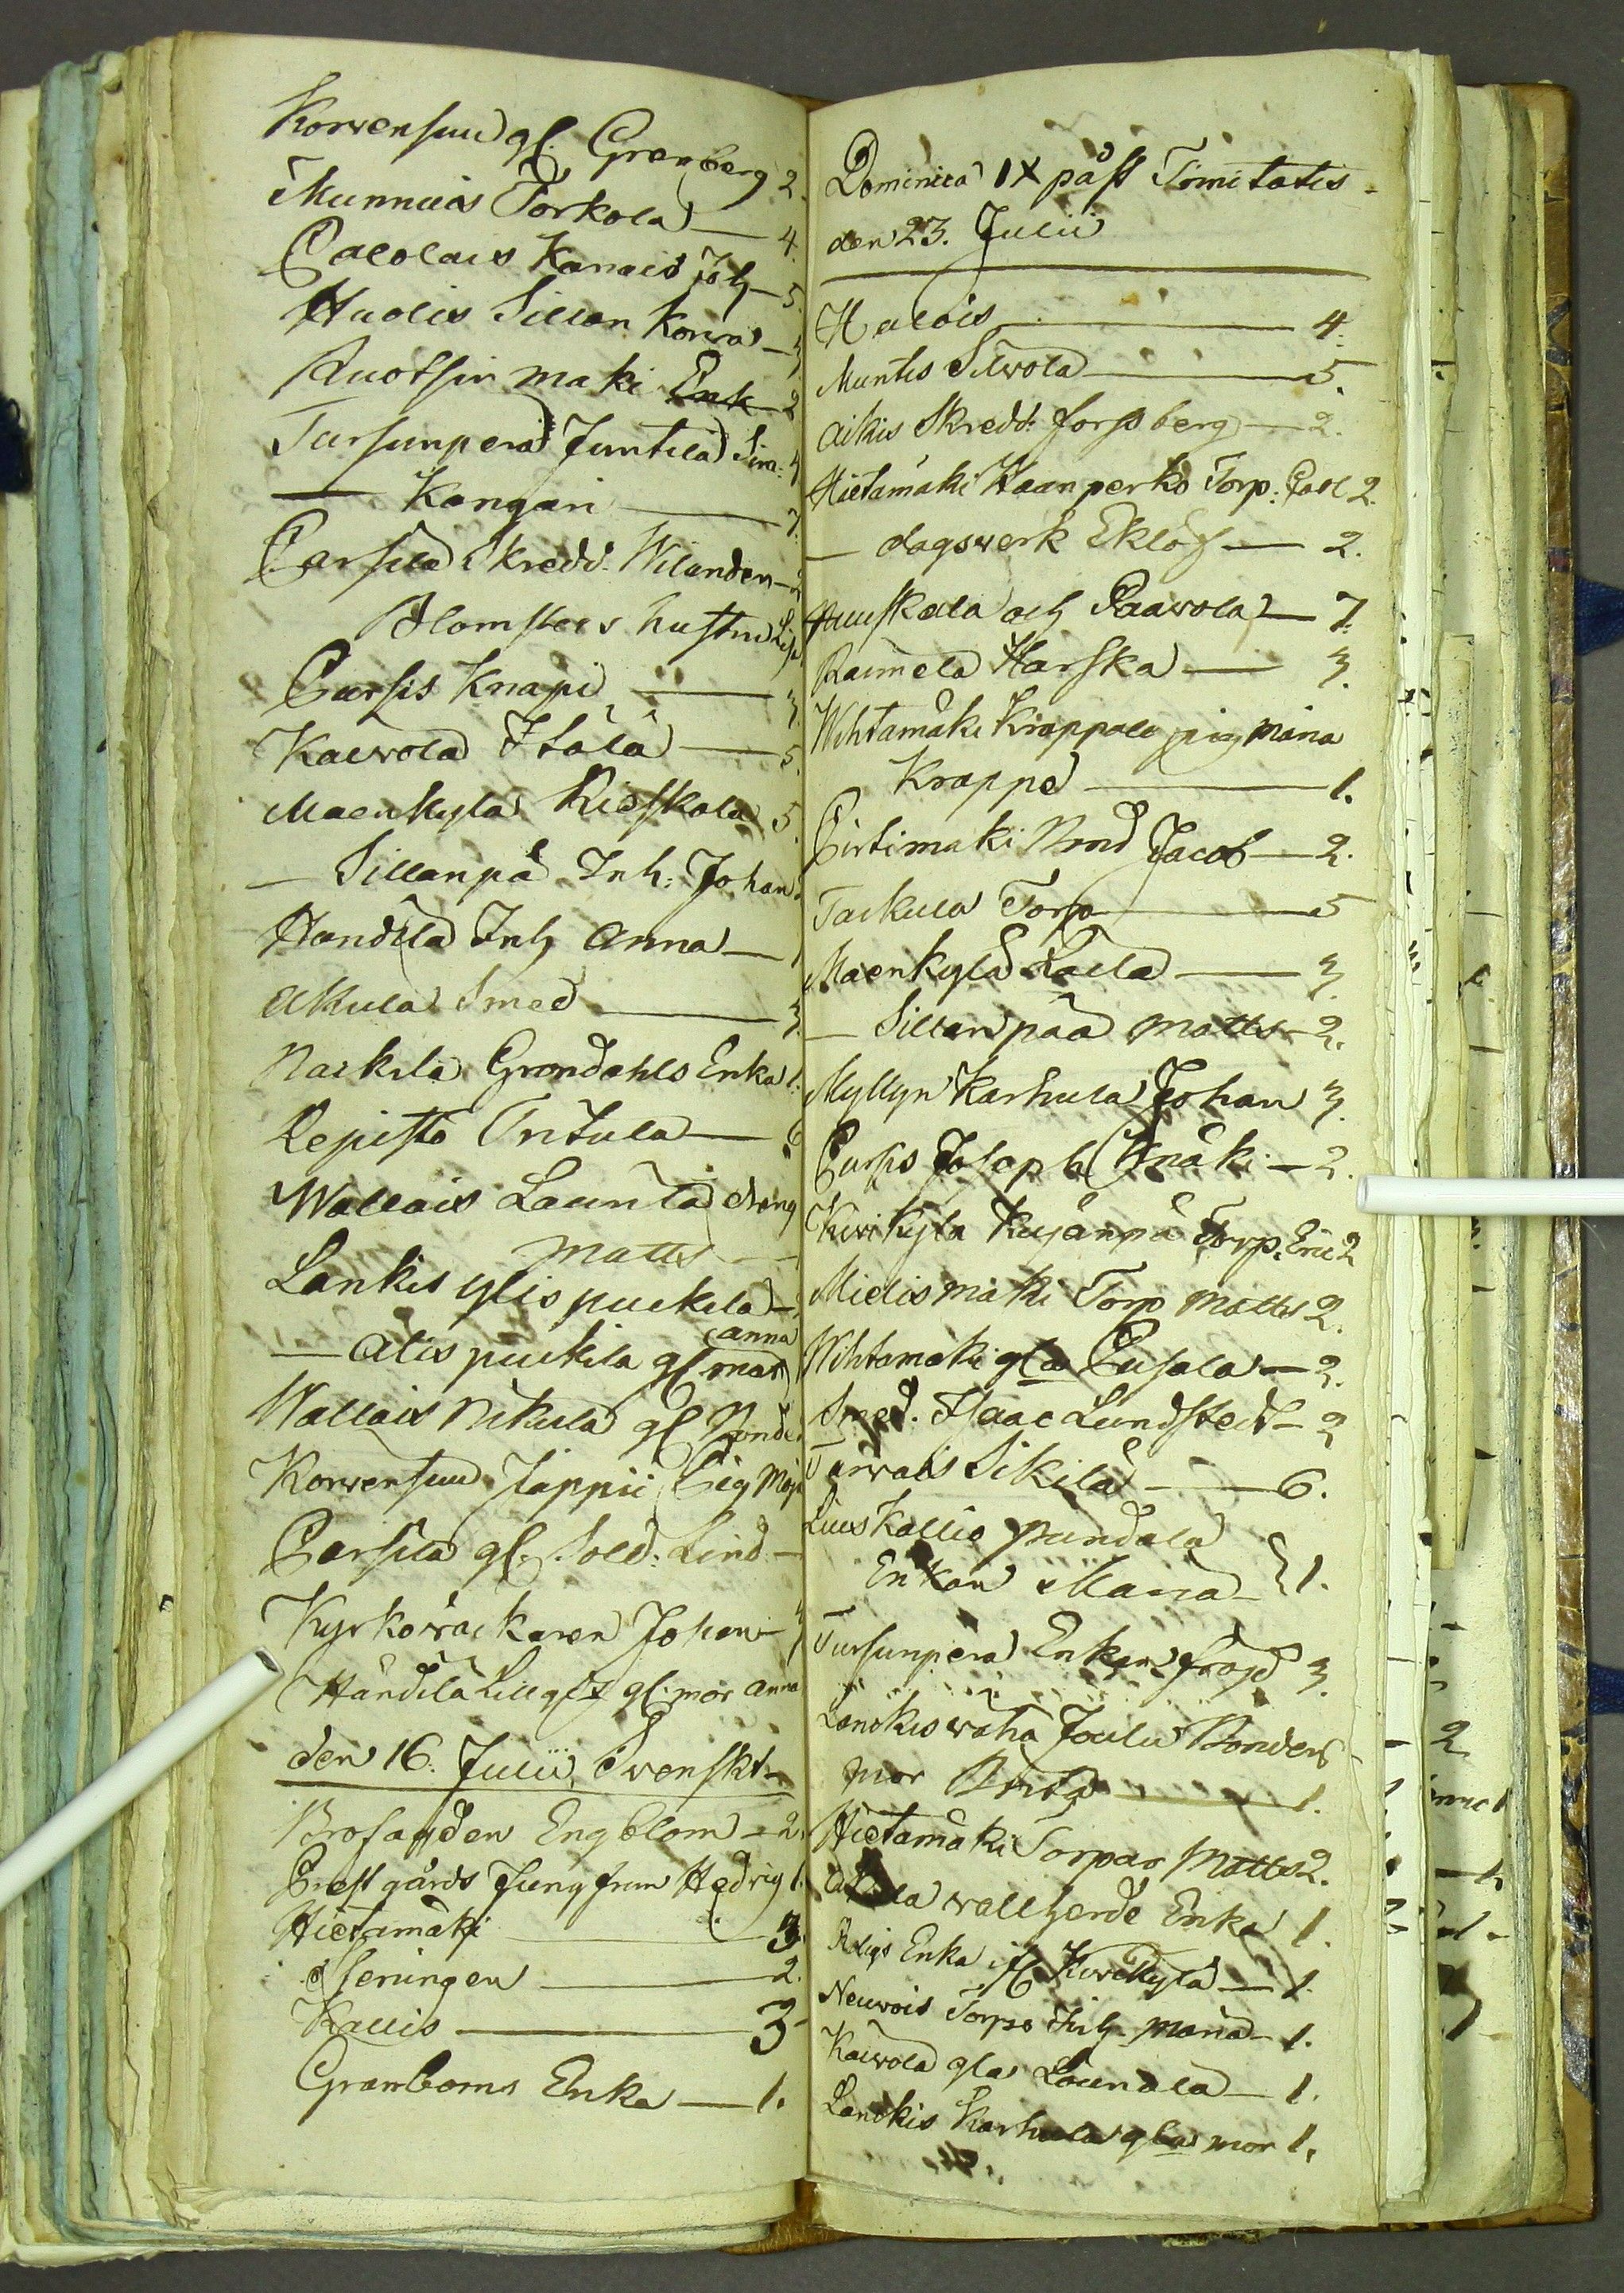 Korvensuu gl. Grenberg 2.
Munnuis Torkola — 4.
Palolais Kanais Joh — 5.
Huolis Sillan Korva — 3
Ruotsin maki Enk 2
Tursunperä Juntila Sim: 3
— Kangari — 7.
Parsila Skredd. Wilanden — 2
Blomsters hustru Lis
Pursis Knapi — 3
Kaivola Itälä — 5.
Maenkyla Kieskola 5.
— Sillanpä Inh: Johan
Handila Inh Anna — 1
Akula Smed — 3.
Naikila Grondahls Enka 1.
Lepistö Ontula — 6
Wallais Launla dreng
Matts —
Lankis ylis puckila —
— Alis puikila gl mor Anna
Wallais Nikula gl Bonde
Korvensuu Jäppii Pig Maja
Parsila gl. Sold: Lind —
Kyrkowäckaren Johan — 3
Händilä Lillgls gl: mor Anna
den 16. Julii Svenskt —
Brofagden Engblom — 2.
Prestgårds Jungfrun Hedvig 1.
Hietamäki — 3.
Seningen — 2.
Kallis — 3
Granboms Enka — 1.
Dominica IX påst Trinitatis
den 23. Julii
Halois — 4.
Muntis Silvola — 5.
Aikis Skredd: Forssberg — 2.
Hietamäki Haanperko Torp: Carl 2.
— dagsverk Eklöf — 2.
Huuskala och Paavola — 7.
Raimela Harska — 3.
Wihtamäki Krappala pig Maria
Krappe — 1.
Pirtimaki Bond Jacob — 2.
Taikula Torp — 5
Maenkylä Laila — 3.
— Sillanpää Matts — 2.
Myllyn Karhula Johan 3.
Pursis Josaph Knäki — 2.
Kivikylä Kujänpä Torp. Eric 2
Mielismäki Torp Matts 2.
Wihtamäki gla Pusala — 3.
Smed. Isaac Lundstedt — 2
Tärvais Sikilä — 6.
Luuskallio Mundala
Enkan Maria — } 1.
Tursunpera Enkan Fröjd 3.
Lanckis vaha Joulu Bondens
Mor Brita — 1.
Hietamäki Torpar Matts 2.
vallherde Enka 1.
Roligs Enka ifr Kivikylä — 1.
Neuvois Torps Inh. Maria — 1.
Kaivola gla Launala — 1.
Lanckis Karhula gla mor 1.